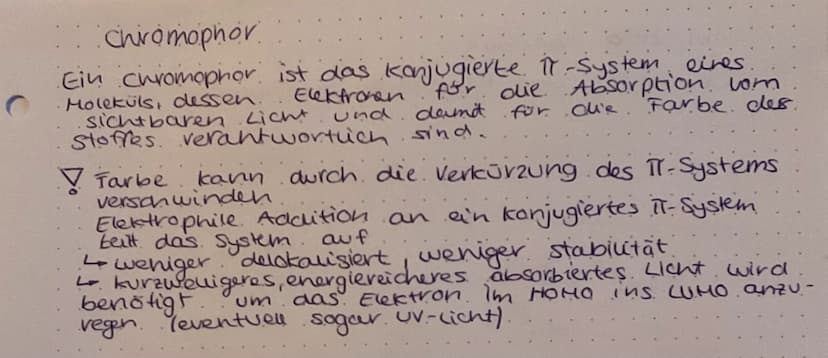 Chromophor
Ein Chromophor ist das konjugierte π-System eines
Moleküls, dessen Elektronen für die Absorption vom
sichtbaren Licht und damit für die Farbe des
Stoffes verantwortlich sind.
! Farbe kann durch die Verkürzung des π-Systems
verschwinden
Elektrophile Addition an ein konjugiertes π-System
teilt das System auf
↳ weniger delokalisiert, weniger stabilität
↳ kurzwelligeres, energiereicheres absorbiertes Licht wird
benötigt um das Elektron im HOMO ins LUMO anzu-
regen (eventuell sogar UV-Licht)